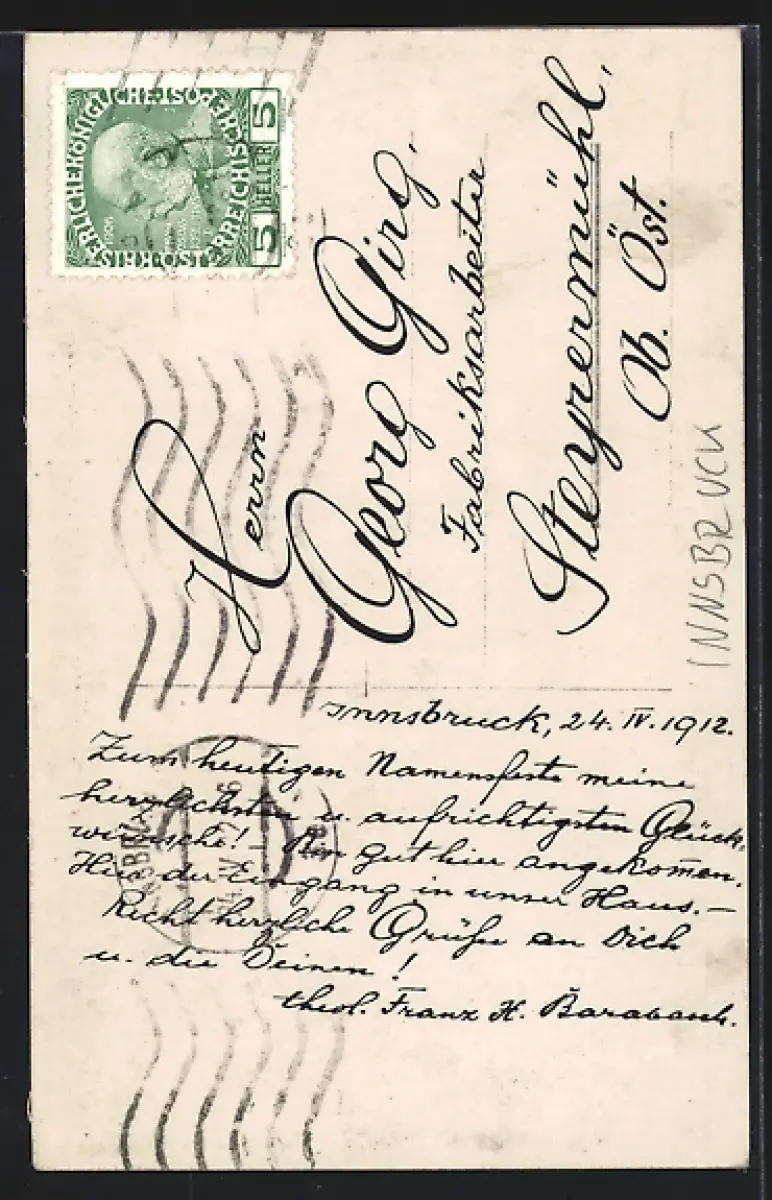 KAISERLICHE KÖNIGLICHE ÖSTERREICHISCHE POST
5 HELLER 5
Herrn
Georg Girg,
Fabriksarbeiter
Steyrermühl,
Ob. Öst.
INNSBRUCK
Innsbruck, 24. IV. 1912.
Zum heutigen Namensfeste meine
herzlichsten u. aufrichtigsten Glück-
wünsche! – Bin gut hier angekom̄en.
Hier der Eingang in unser Haus. –
Recht herzliche Grüße an Dich
u. die Deinen!
theol. Franz H.